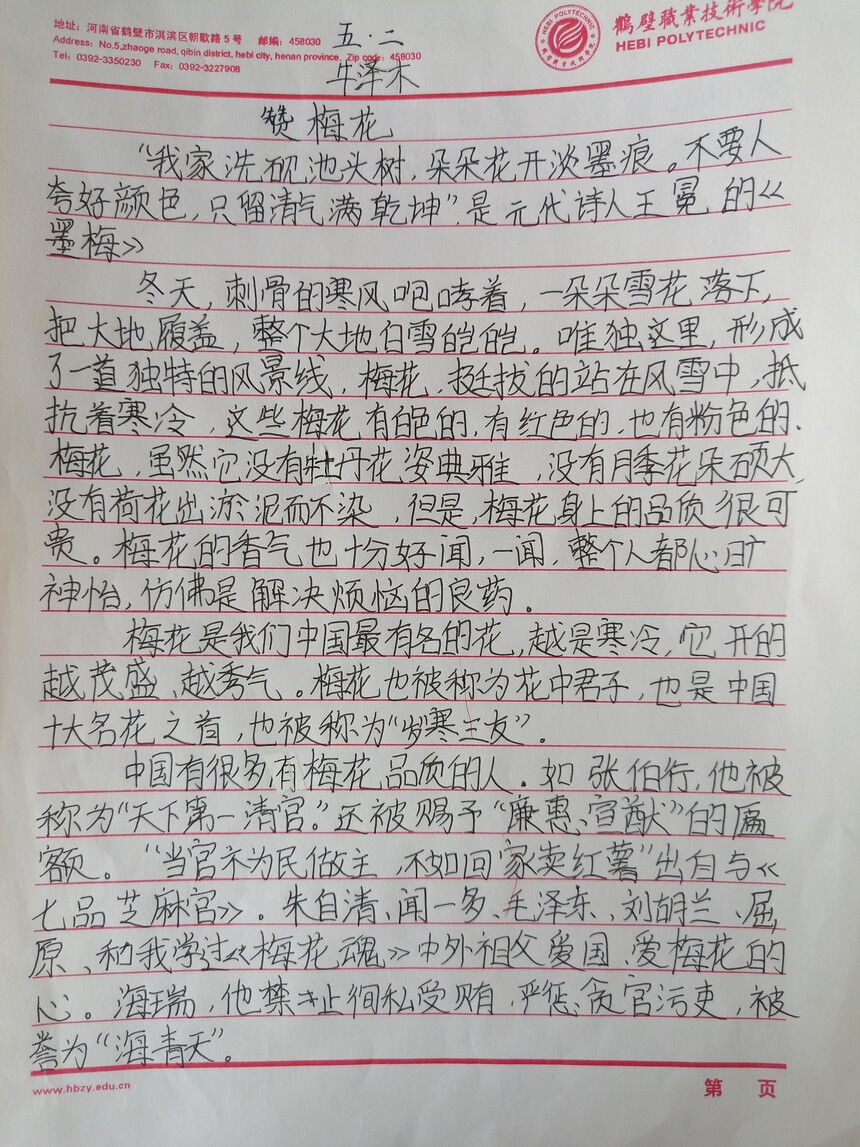 地址：河南省鹤壁市淇滨区朝歌路5号 邮编：458030
Address: No.5,zhaoge road, qibin district, hebi city, henan province. Zip code: 458030
Tel: 0392-3350230 Fax: 0392-3227908
鹤壁職業技術學院
HEBI POLYTECHNIC
五·二
牛泽木
赞梅花
“我家洗砚池头树，朵朵花开淡墨痕。不要人
夸好颜色，只留清气满乾坤”是元代诗人王冕的《
墨梅》
冬天，刺骨的寒风咆哮着，一朵朵雪花落下，
把大地履盖，整个大地白雪皑皑。唯独这里，形成
了一道独特的风景线，梅花，挺拔的站在风雪中，抵
抗着寒冷，这些梅花有白色的，有红色的，也有粉色的、
梅花，虽然它没有牡丹花姿典雅，没有月季花朵硕大，
没有荷花出淤泥而不染，但是，梅花身上的品质很可
贵。梅花的香气也十分好闻，一闻，整个人都心旷
神怡，仿佛是解决烦恼的良药。
梅花是我们中国最有名的花，越是寒冷，它开的
越茂盛、越秀气。梅花也被称为花中君子，也是中国
十大名花之首，也被称为“岁寒三友”。
中国有很多有梅花品质的人．如张伯行，他被
称为“天下第一清官。”还被赐予“廉惠、宣猷”的匾
额。“当官不为民做主，不如回家卖红薯”出自与《
七品芝麻官》。朱自清、闻一多、毛泽东、刘胡兰、屈
原、和我学过《梅花魂》中外祖父爱国、爱梅花的
心。海瑞，他禁止徇私受贿，严惩贪官污吏，被
誉为“海青天”。
www.hbzy.edu.cn
第 页